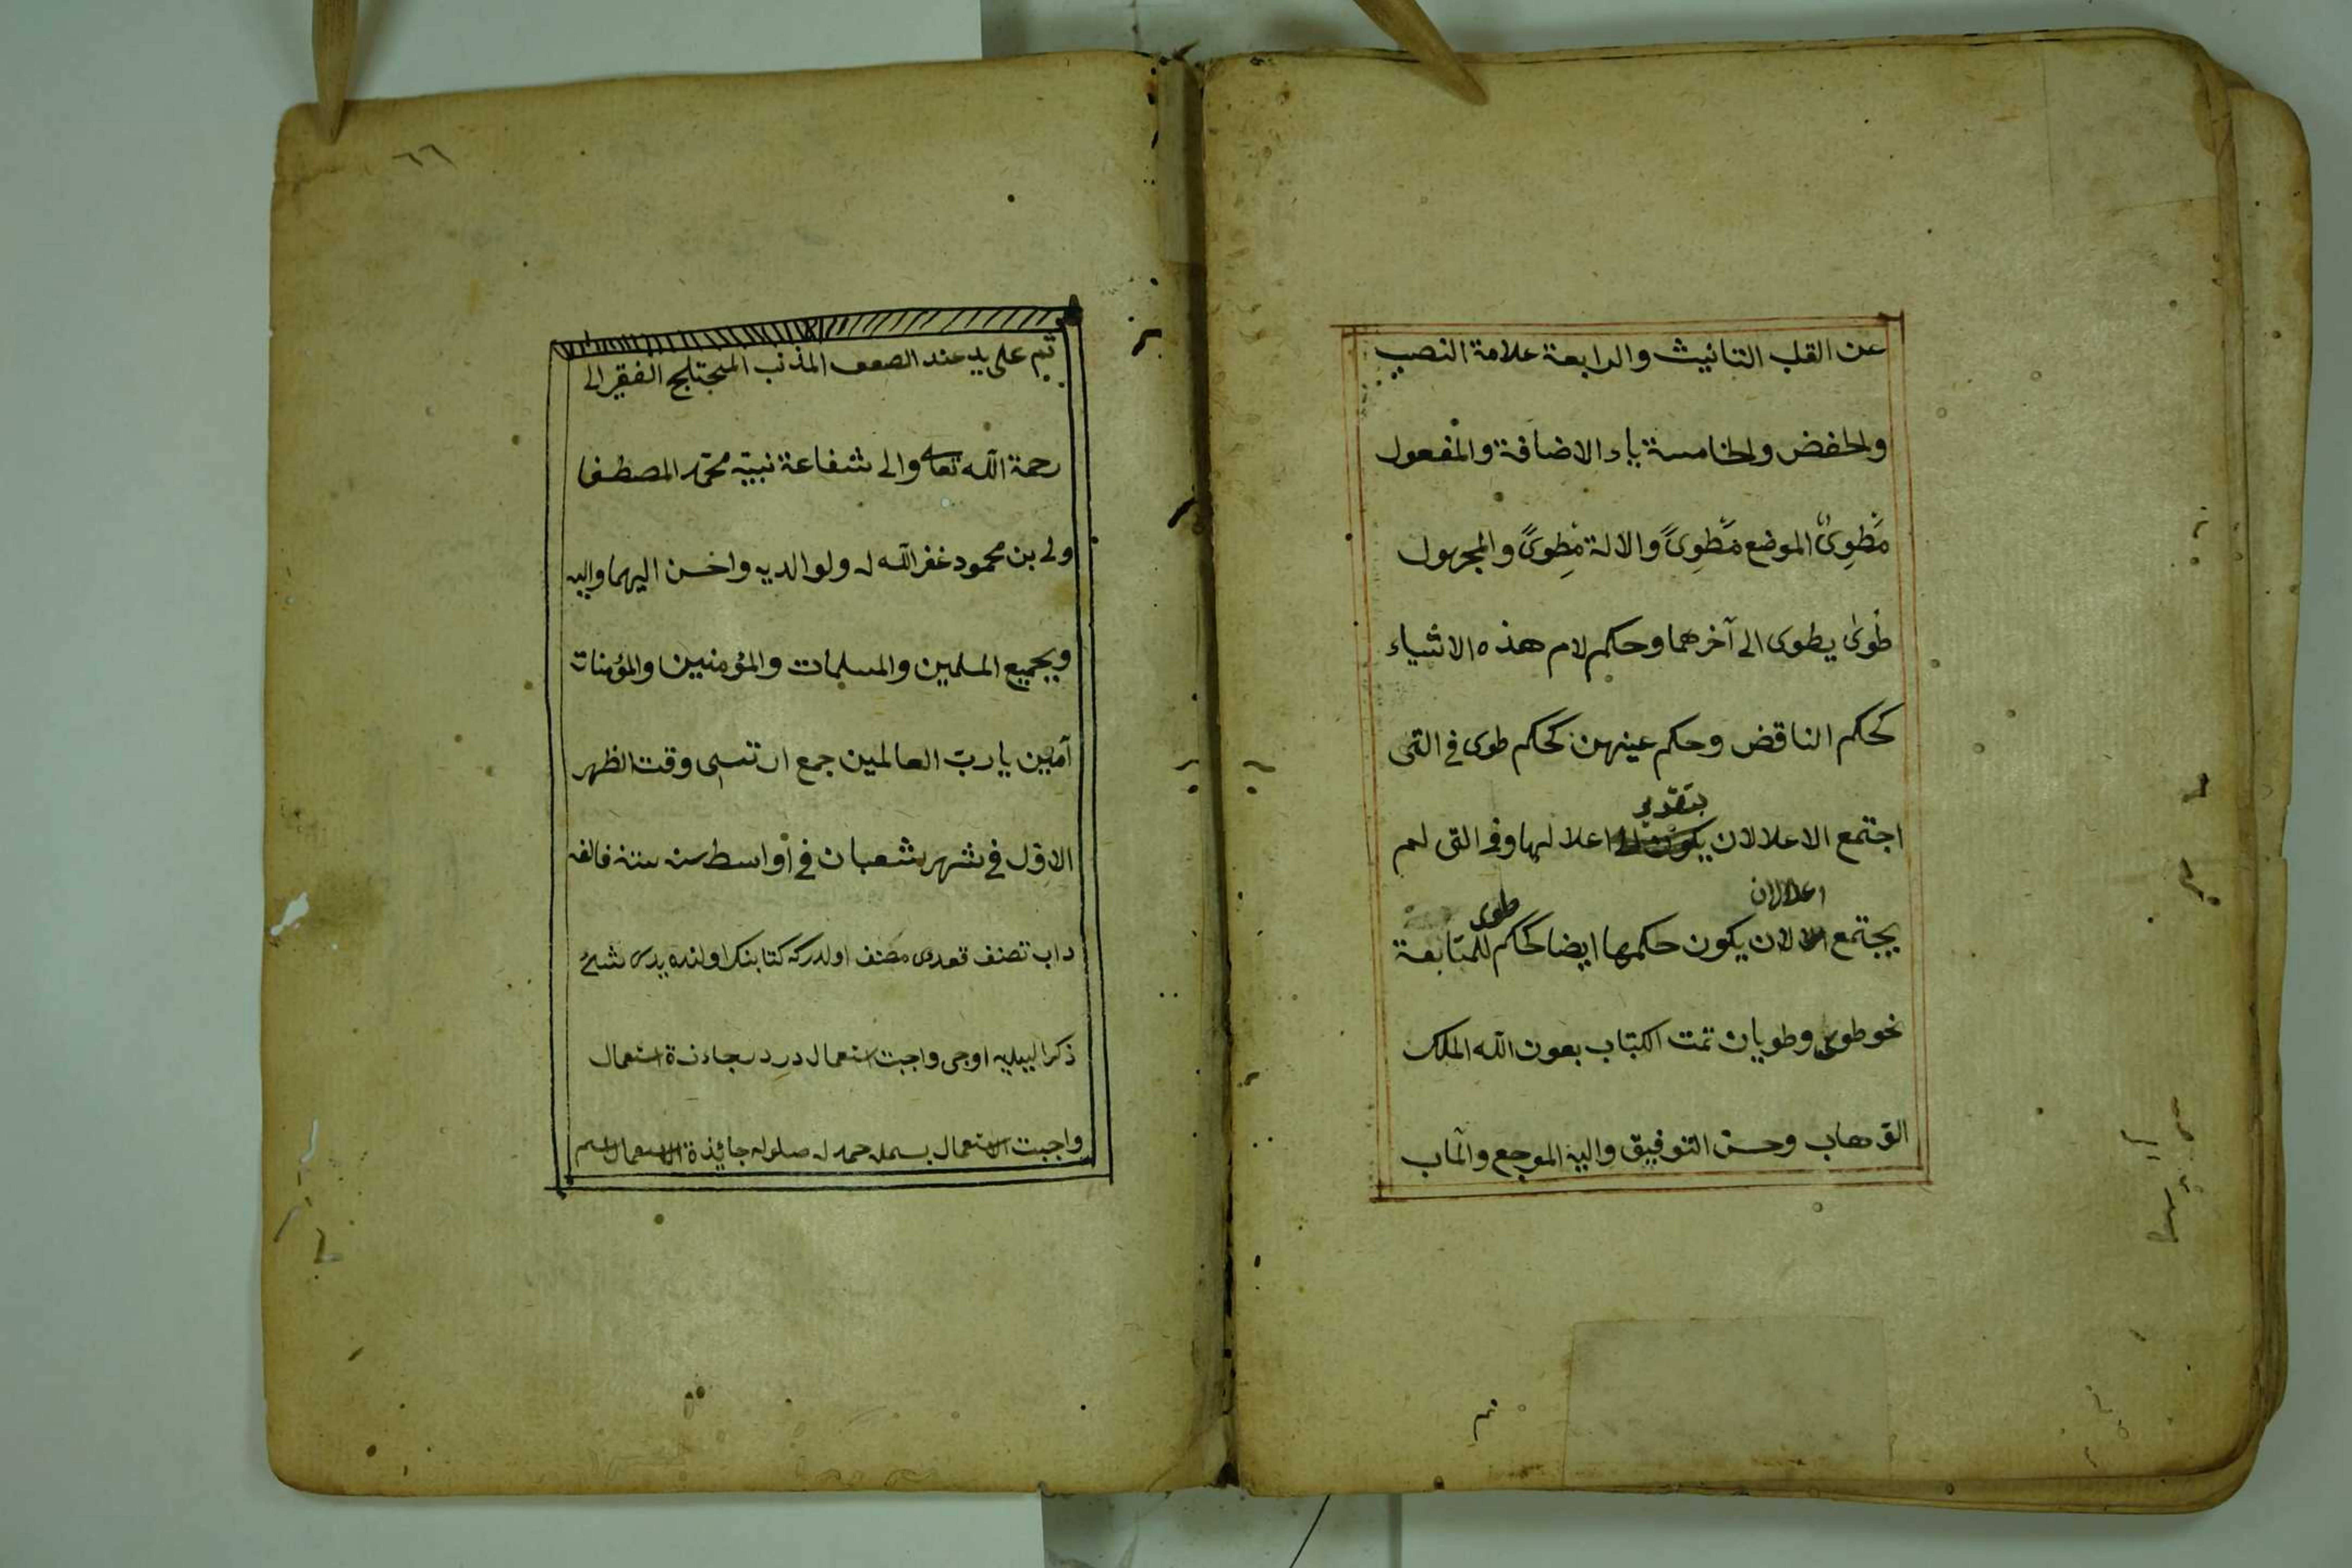 عن القلب التانيث والرابعة علامة النصب
والخفض والخامسة ياء الاضافة والمفعول
مَطوِىٌّ الموضع مَطوِىً والالة مِطوىً والمجهول
طوى يطوى الى آخرهما وحكم لام هذه الاشياء
كحكم الناقض وحكم عينهن كحكم طوى فى التى
بتقدير
اجتمع الاعلالان اعلالها وفى التى لم
اعلالان
يجتمع يكون حكمها ايضا كحكم للمتابعة
طوى
نحو طوى وطويان تمت الكتاب بعون الله الملك
الوهاب وحسن التوفيق واليه المرجع والمآب
٦٦
تم على يد المذنب الفقير الى
رحمة الله تعالى والى شفاعة نبيّه محمّد المصطفى
ولى بن محمود غفر الله له ولوالديه واحسن اليهما واليه
وبجميع المسلمين والمسلمات والمؤمنين والمؤمنات
آمين يا ربّ العالمين جمع ارتسى وقت الظهر
الاوّل فى شهر شعبان فى اواسط سنه
داب تصنف مصنف اولدركه كتابنك اولنده
ذكر ايليه اوچى واجبت استعمال استعمال
واجبت الاستعمال بسمله حمدله صلوله جائزة الاستعمال